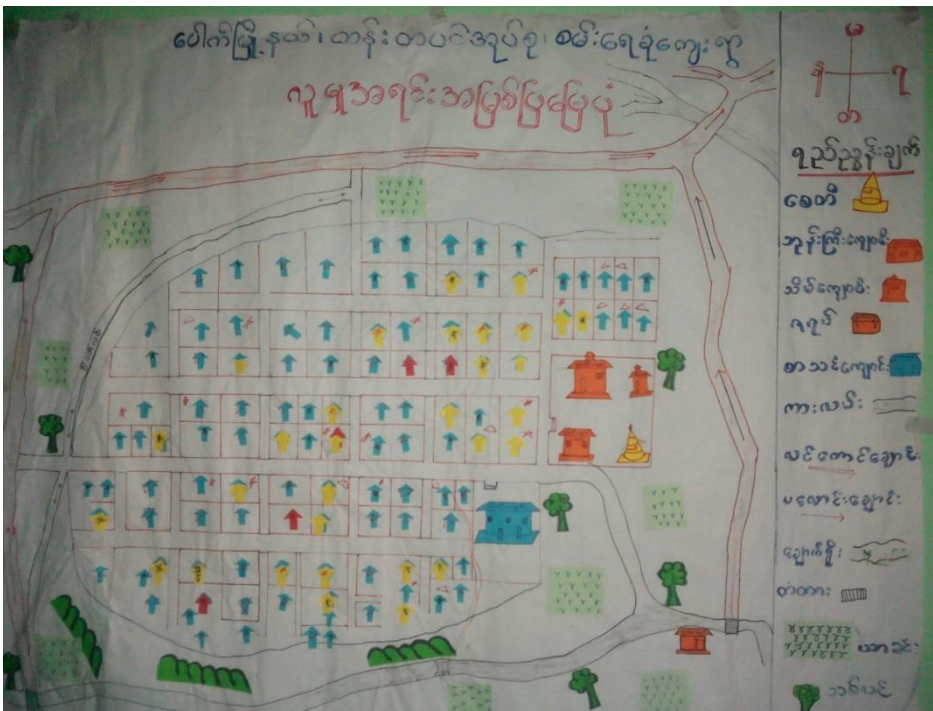 ပေါက်မြို့နယ်၊ တန်းတပင်အုပ်စု၊ စမ်းရေခုံကျေးရွာ
လူမှုအရင်းအမြစ်ပြမြေပုံ
မ
န
ရ
တ
ရည်ညွှန်းချက်
စေတီ
ဘုန်းကြီးကျောင်း
သိမ်ကျောင်း
ဇရပ်
စာသင်ကျောင်း
ကားလမ်း
ချောက်ရိုး
တံတား
ယာခင်း
သစ်ပင်